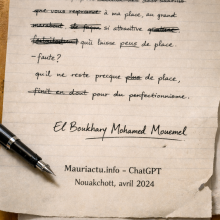 que vous reprenez à ma place, au grand
de façon si attractive
qu'i laisse peu de place.
-faute?
qu'il ne reste presque plus de place,
finit en doit pour du perfectionnisme.
El Boukhary Mohamed Mouemel
Mauriactu.info - ChatGPT
Nouakchott, avril 2024